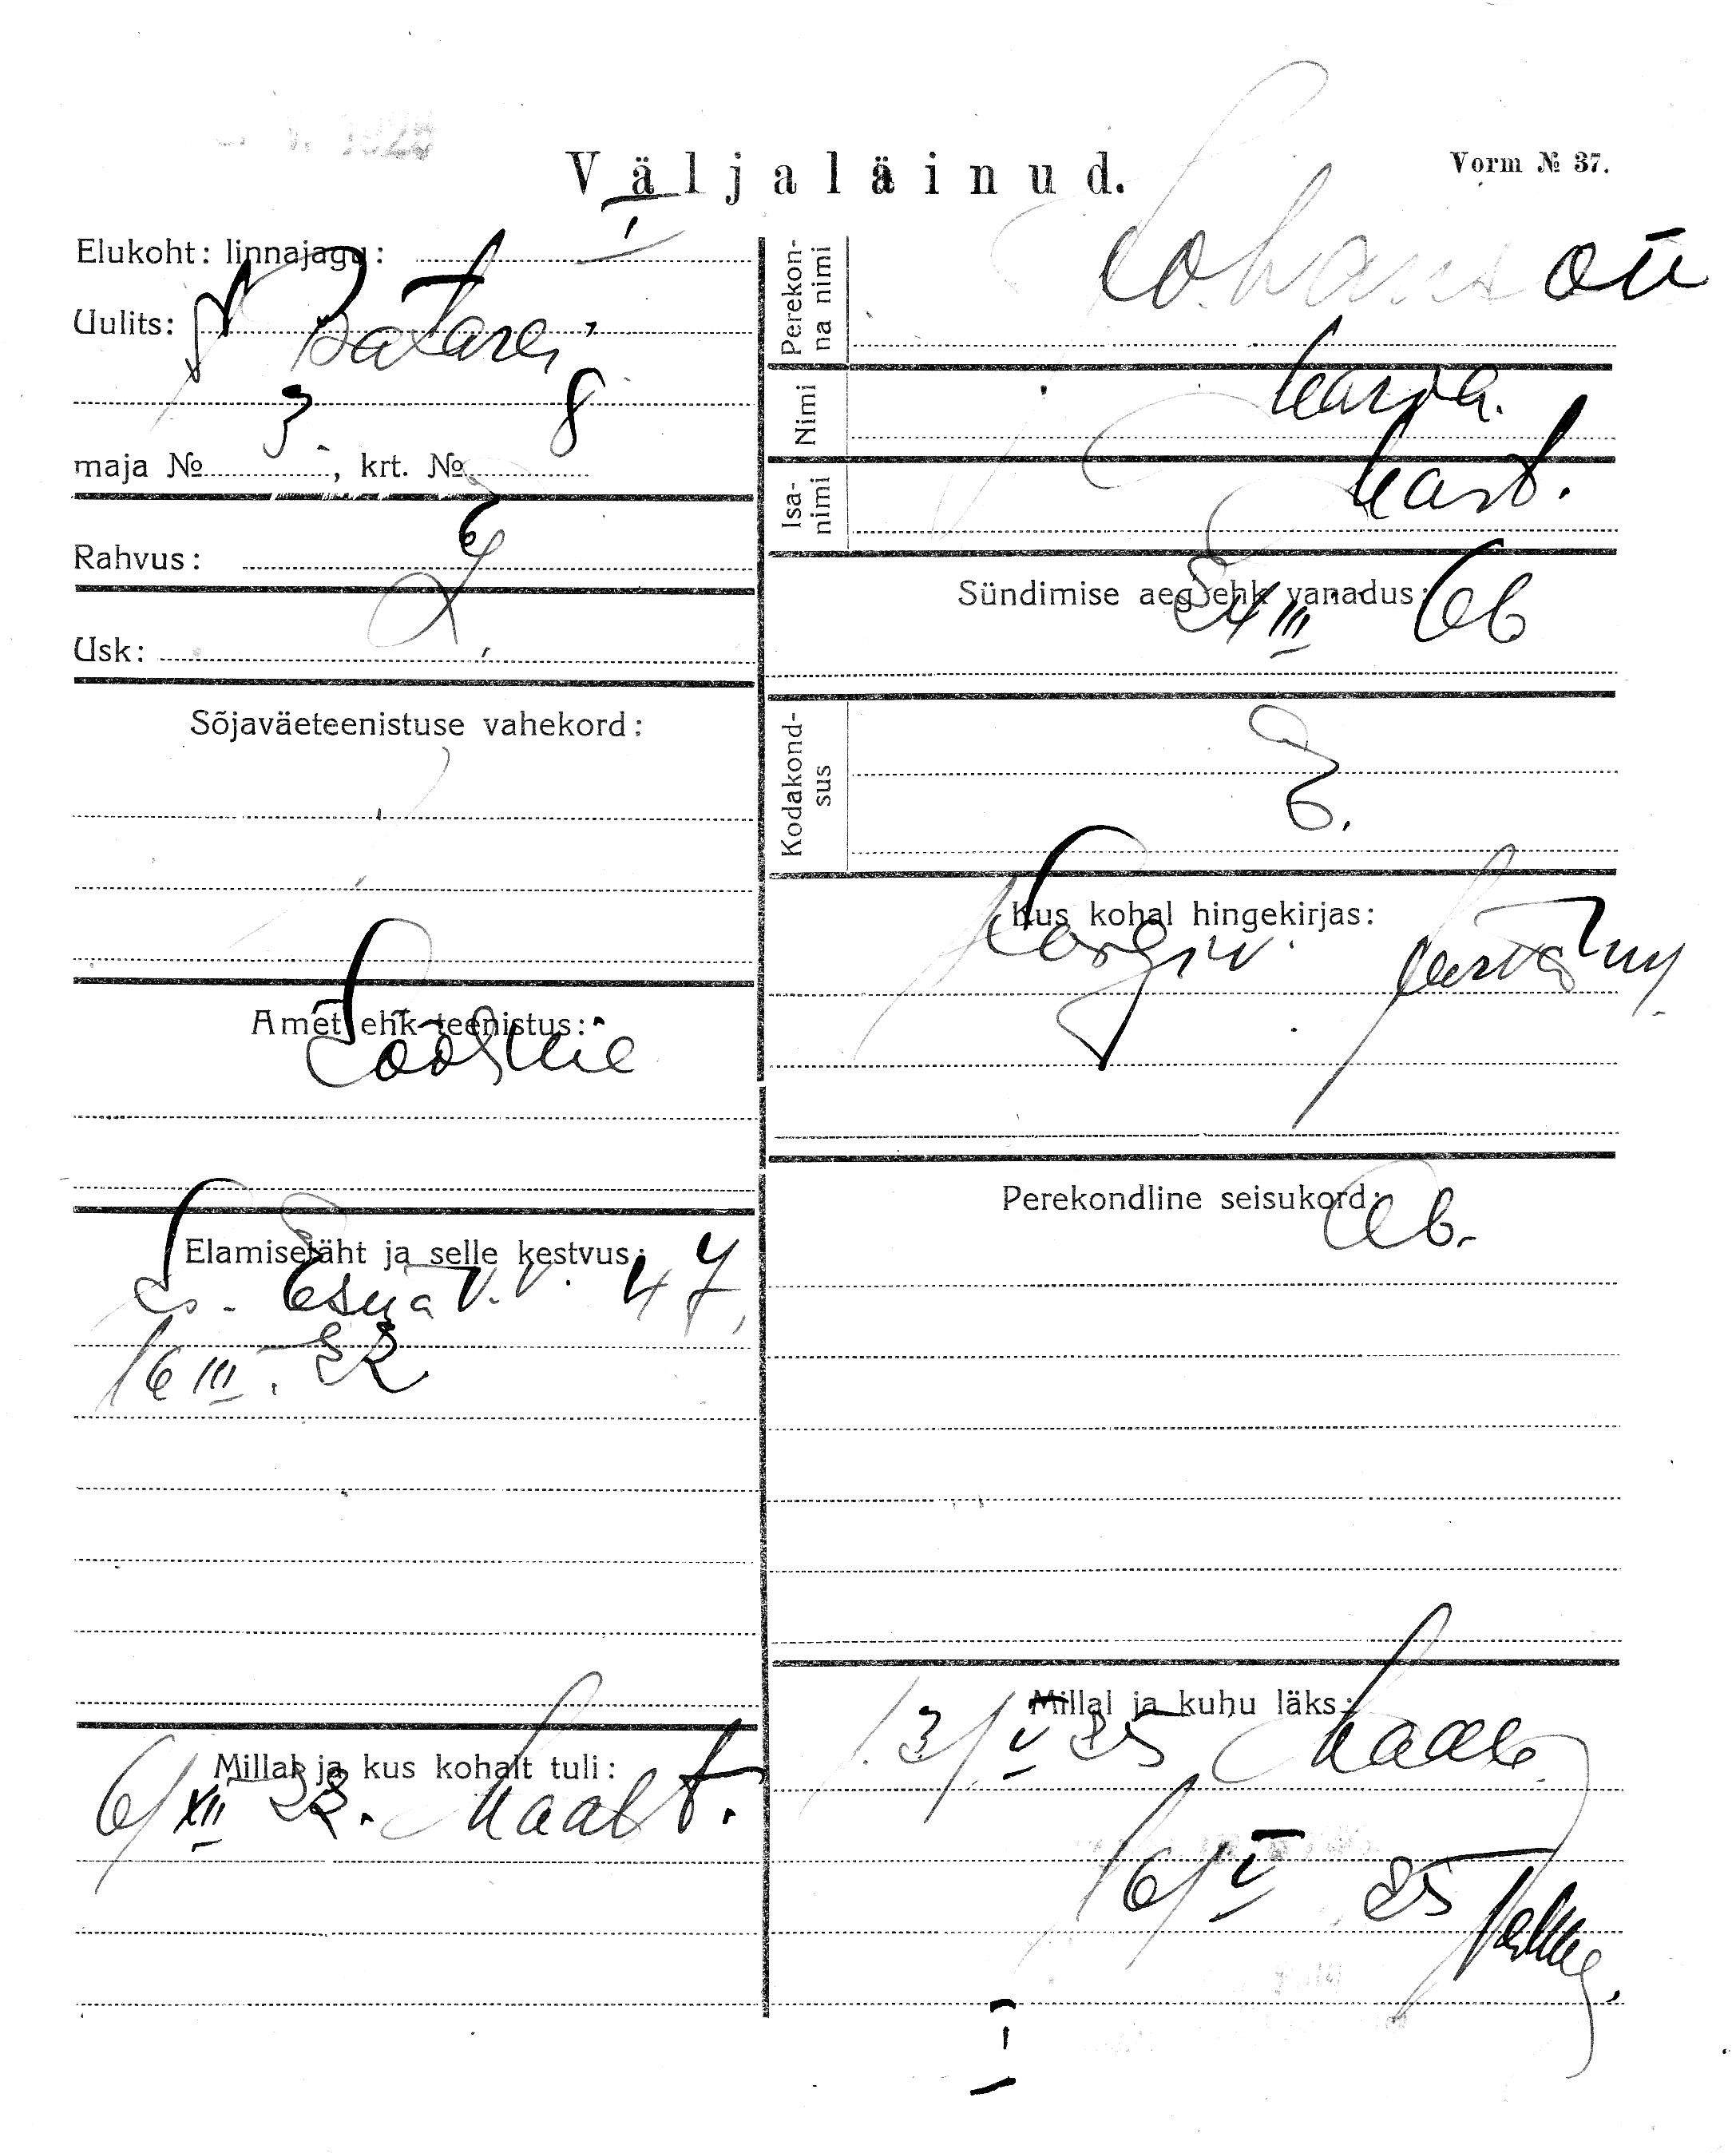 Väljaläinud.
Vorm № 37.
Elukoht: linnajagu: I
Uulits: Batarei
maja № 3, krt. № 8
Rahvus: E
Usk: L
Sõjaväeteenistuse vahekord:
Amet ehk teenistus:
Tööline
Elamiseläht ja selle kestvus:
Is. Esna v.v. 47,
16 III. 22
Millal ja kus kohalt tuli:
6/XII 22. Maalt.
Perekonna nimi
Johanson
Nimi
Maria.
Isanimi
Mart.
Sündimise aeg ehk vanadus:
24 III 06
Kodakondsus
E.
Kus kohal hingekirjas:
Perekondline seisukord:
Ab.
Millal ja kuhu läks:
13/V 25 Maale
16/V 25
I